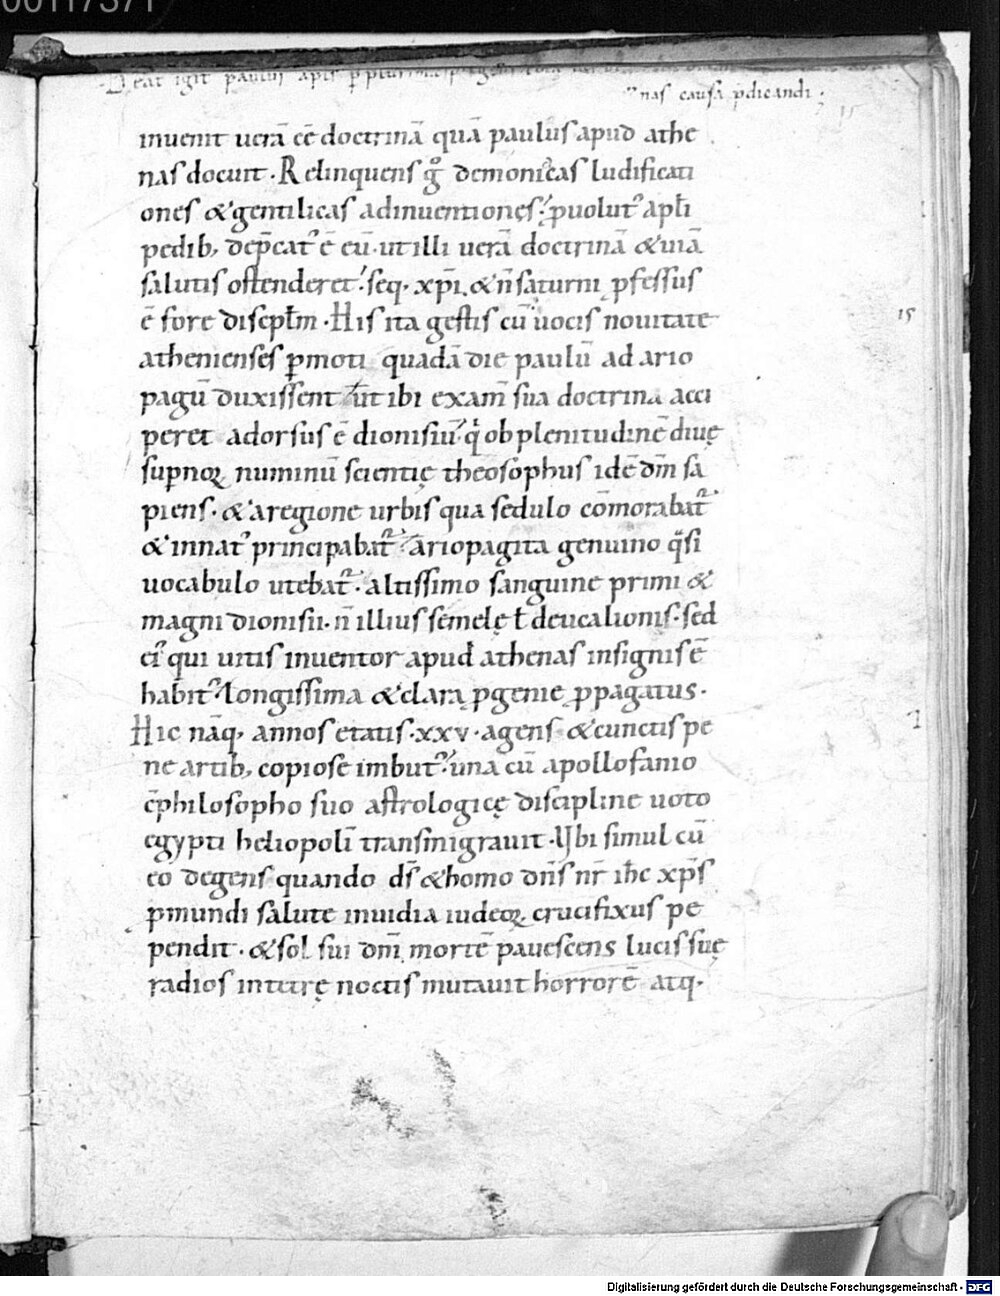 00117371
igit paulus
nas causa p̄dicandi ;
15
inuenit uerā c̄e doctrinā quā paulus apud athe
nas docuit · Relinquens g̊ demonicas ludificati
ones & gentilicas adinuentiones ; ꝓuolutꝰ apl̄i
pedib; dep̄catꝰ ē eū · ut illi uerā doctrinā & uiā
salutis ostenderet · seq; xp̄i · & n̄ saturni ꝓfessus
ē fore discipl̄m · His ita gestis cū uocis nouitate
15
athenienses ꝑmoti quadā die paulū ad ario
pagū duxissent ut ibi exam̄ sua doctrina acci
peret adorsus ē dionisiū · q̇ ob plenitudinē diuę
supnoꝝ numinū scientię theosophus idē dm̄ sa
piens · & a regione urbis qua sedulo cōmorabat᷑
& in natꝰ principabat᷑ ariopagita genuino q̄si
uocabulo utebat᷑ · altissimo sanguine primi &
magni dionisii · n̄ illius semelę ł deucalionis · sed
eiꝰ qui uitis inuentor apud athenas insignis ē
habitꝰ · longissima & clara ꝓgenie ꝓpagatus ·
Hic nāq; annos etatis · xxv · agens & cunctis pe
ne artib; copiose imbutꝰ · una cū apollofanio
c̄philosopho suo astrologicę discipline uoto
egypti heliopolī transmigrauit · Ubi simul cū
eo degens quando ds̄ & homo dn̄s nr̄ ih̄c xp̄s
ꝓ mundi salute inuidia iudeoꝝ crucifixus pe
pendit · & sol sui dm̄ mortē pauescens lucis suę
radios in tetrę noctis mutauit horrorē atq;
Digitalisierung gefördert durch die Deutsche Forschungsgemeinschaft - DFG